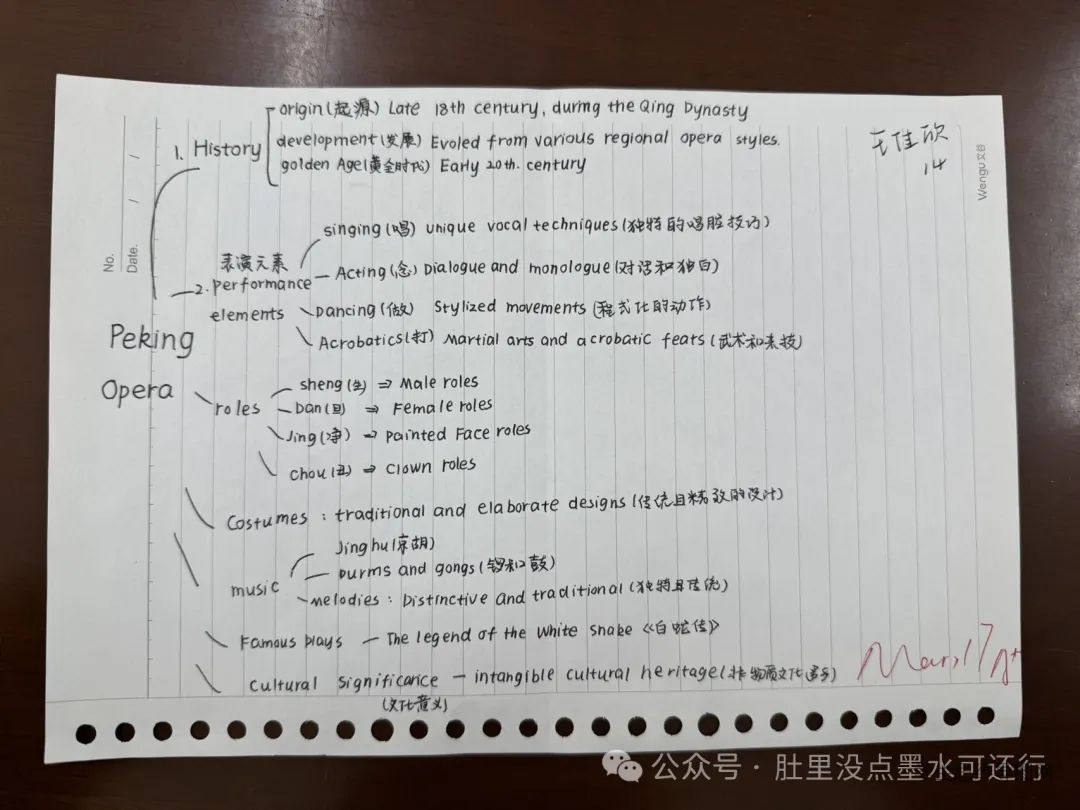 origin(起源) Late 18th century, during the Qing Dynasty
1. History
development(发展) Evoled from various regional opera styles.
golden Age(黄金时代) Early 20th. century
王佳欣
14
Wengu 文谷
No.
Date. / /
singing (唱) unique vocal techniques(独特的唱腔技巧)
表演元素
2. performance
elements
Acting(念) Dialogue and monologue(对话和独白)
Dancing(做) Stylized movements (程式化的动作)
Acrobatics(打) Martial arts and acrobatic feats (武术和杂技)
Peking
Opera
roles
sheng(生) ⇒ Male roles
Dan(旦) ⇒ Female roles
Jing(净) ⇒ painted Face roles
chou(丑) ⇒ clown roles
Costumes : traditional and elaborate designs(传统且精致的设计)
music
Jinghu(京胡)
Durms and gongs(锣和鼓)
melodies : Distinctive and traditional(独特且传统)
Famous plays — The legend of the White Snake《白蛇传》
cultural significance — intangible cultural heritage(非物质文化遗产)
(文化意义)
公众号 · 肚里没点墨水可还行